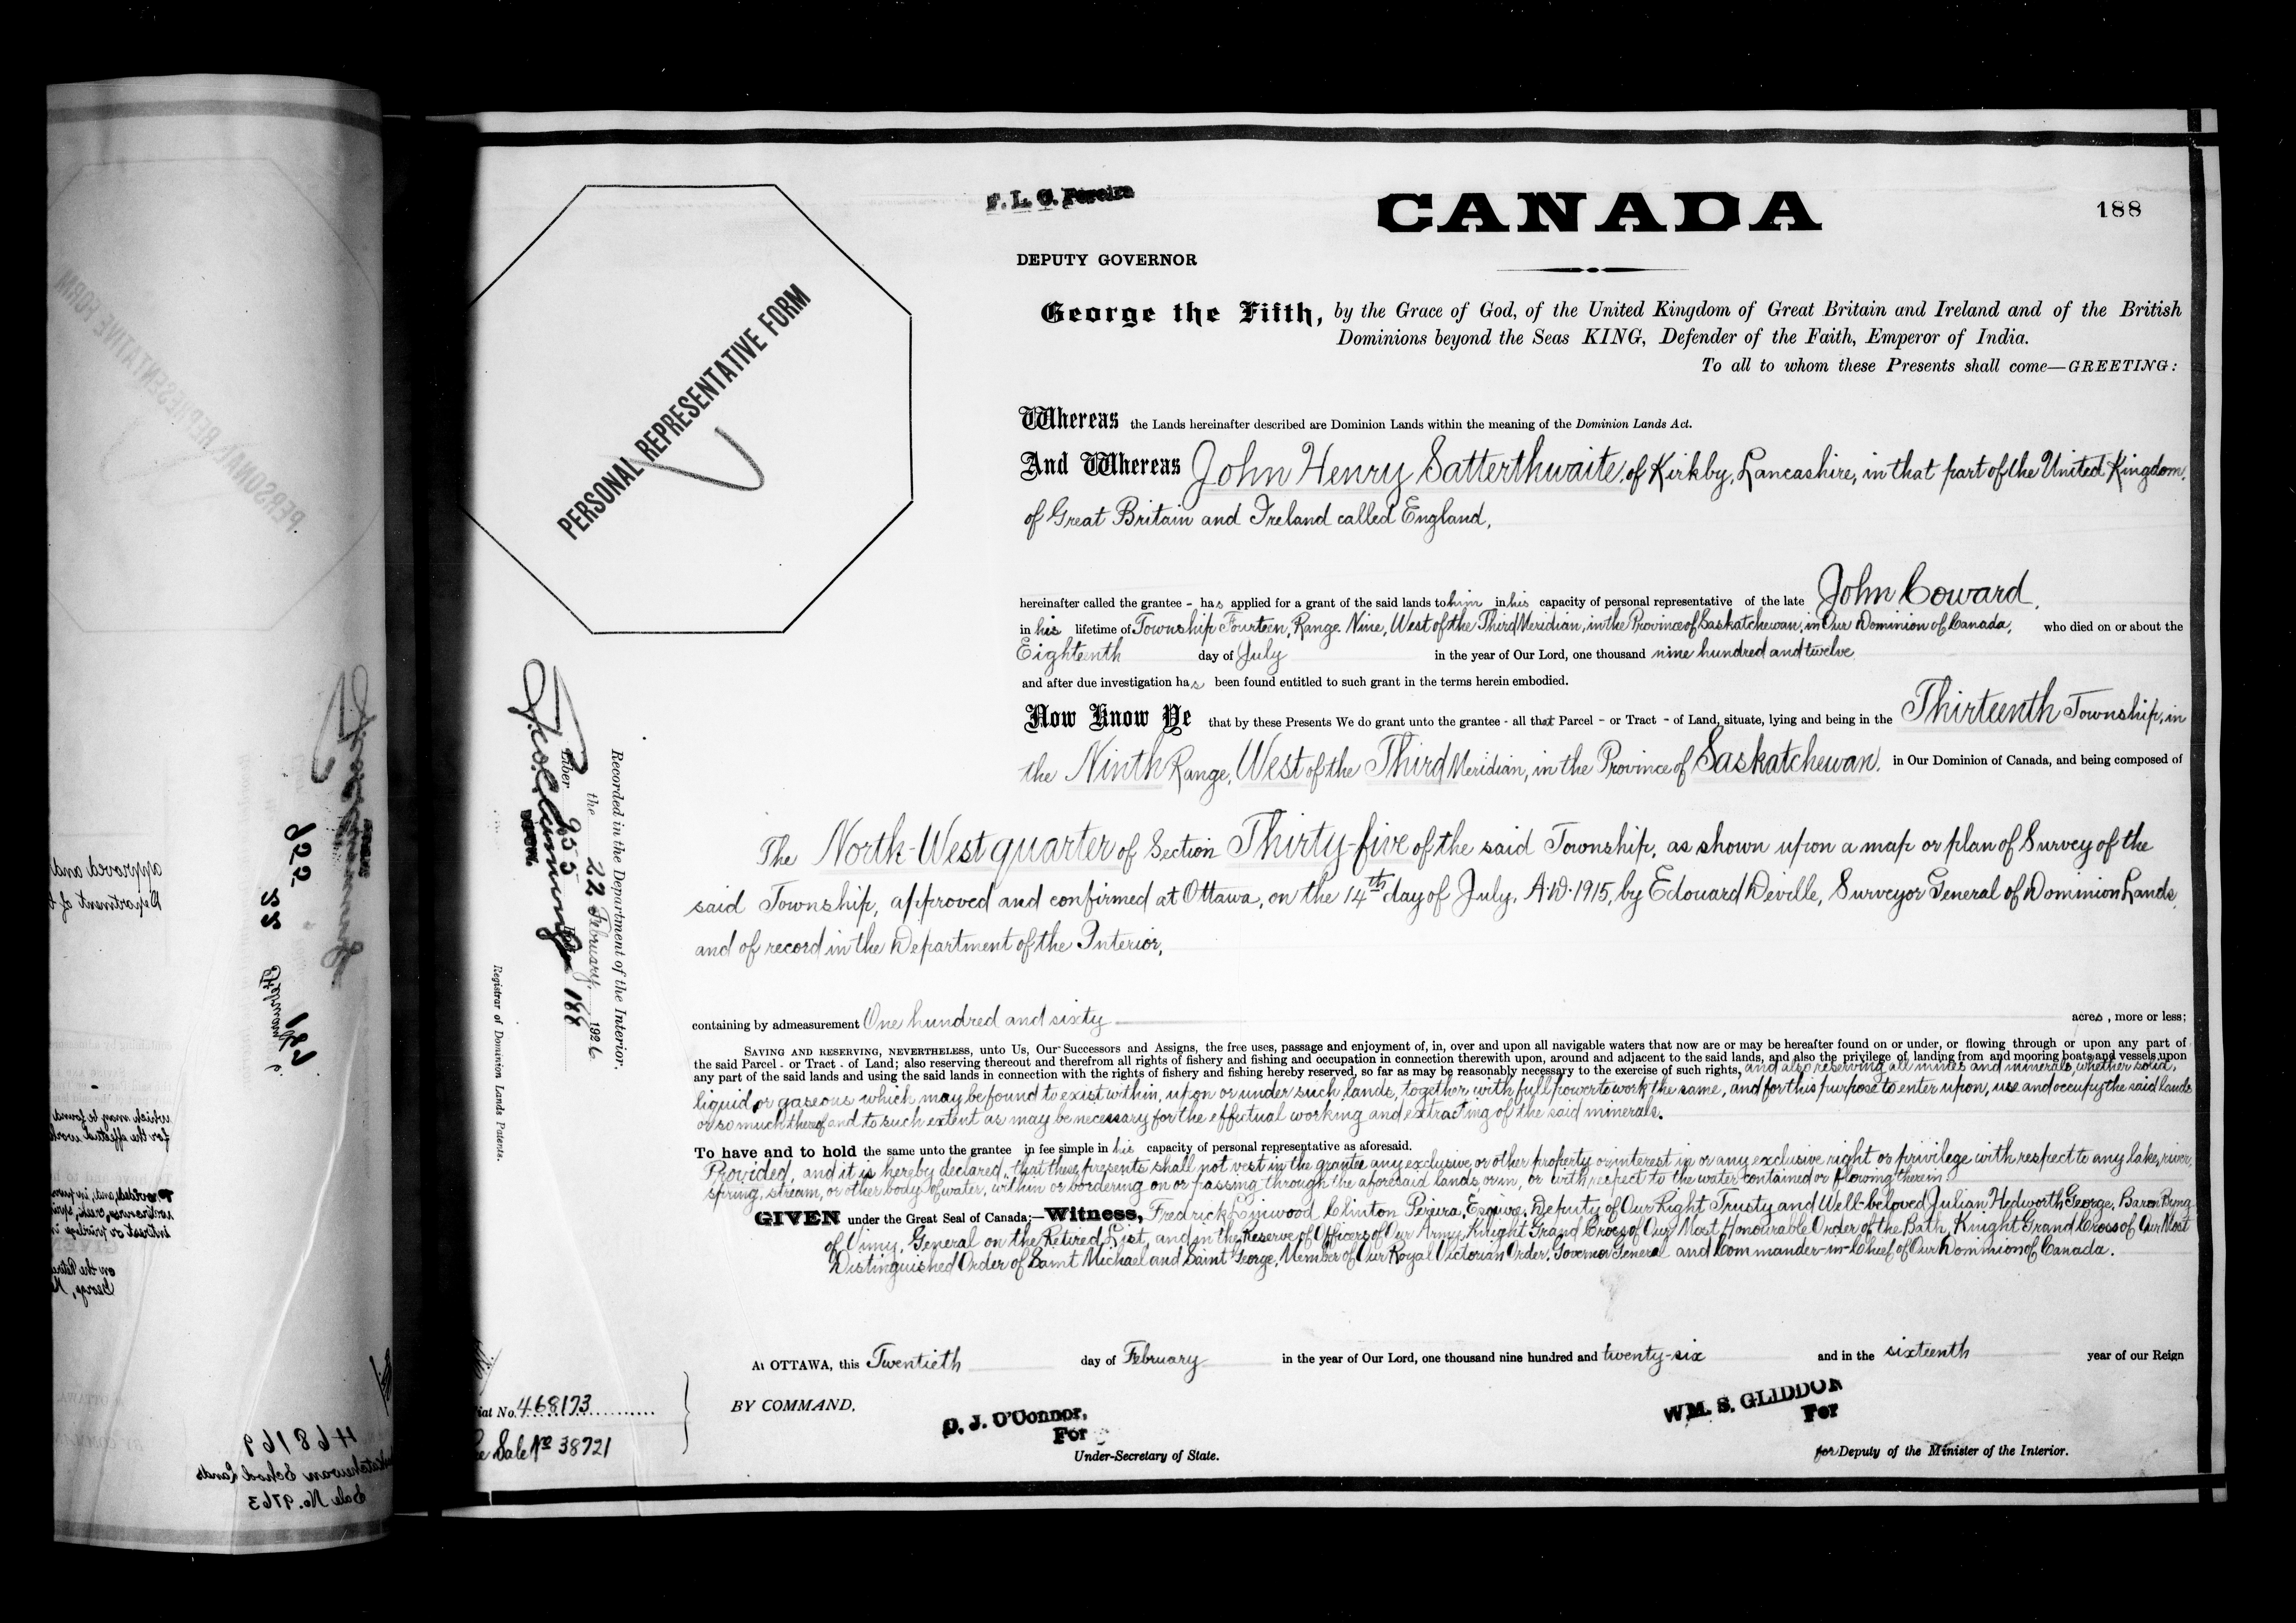 F. L. C. Pereira
CANADA
188
DEPUTY GOVERNOR
George the Fifth, by the Grace of God, of the United Kingdom of Great Britain and Ireland and of the British
Dominions beyond the Seas KING, Defender of the Faith, Emperor of India.
To all to whom these Presents shall come—GREETING:
PERSONAL REPRESENTATIVE FORM
Whereas the Lands hereinafter described are Dominion Lands within the meaning of the Dominion Lands Act.
And Whereas John Henry Satterthwaite, of Kirkby, Lancashire, in that part of the United Kingdom,
of Great Britain and Ireland called England,
hereinafter called the grantee - has applied for a grant of the said lands to him in his capacity of personal representative of the late John Coward,
in his lifetime of Township Fourteen, Range Nine, West of the Third Meridian, in the Province of Saskatchewan, in Our Dominion of Canada, who died on or about the
Eighteenth day of July in the year of Our Lord, one thousand nine hundred and twelve
and after due investigation has been found entitled to such grant in the terms herein embodied.
Now Know Ye that by these Presents We do grant unto the grantee - all that Parcel - or Tract - of Land, situate, lying and being in the Thirteenth Township, in
the Ninth Range, West of the Third Meridian, in the Province of Saskatchewan, in Our Dominion of Canada, and being composed of
The North-West quarter of Section Thirty-five of the said Township, as shown upon a map or plan of Survey of the
said Township, approved and confirmed at Ottawa, on the 14th day of July, A.D. 1915, by Edouard Deville, Surveyor General of Dominion Lands,
and of record in the Department of the Interior,
containing by admeasurement One hundred and sixty acres, more or less;
SAVING AND RESERVING, NEVERTHELESS, unto Us, Our Successors and Assigns, the free uses, passage and enjoyment of, in, over and upon all navigable waters that now are or may be hereafter found on or under, or flowing through or upon any part of
the said Parcel - or Tract - of Land; also reserving thereout and therefrom all rights of fishery and fishing and occupation in connection therewith upon, around and adjacent to the said lands, and also the privilege of landing from and mooring boats and vessels upon
any part of the said lands and using the said lands in connection with the rights of fishery and fishing hereby reserved, so far as may be reasonably necessary to the exercise of such rights, and also reserving all mines and minerals, whether solid,
liquid or gaseous which may be found to exist within, upon or under such lands, together with full power to work the same, and for this purpose to enter upon, use and occupy the said lands
or so much thereof and to such extent as may be necessary for the effectual working and extracting of the said minerals.
To have and to hold the same unto the grantee in fee simple in his capacity of personal representative as aforesaid.
Provided, and it is hereby declared, that these presents shall not vest in the grantee any exclusive or other property or interest in or any exclusive right or privilege with respect to any lake, river,
spring, stream, or other body of water, within or bordering on or passing through the aforesaid lands or in, or with respect to the water contained or flowing therein.
GIVEN under the Great Seal of Canada:—Witness, Fredrick Linwood Clinton Pereira, Esquire, Deputy of Our Right Trusty and Well-beloved Julian Hedworth George, Baron Byng
of Vimy, General on the Retired List, and in the Reserve of Officers of Our Army, Knight Grand Cross of Our Most Honourable Order of the Bath, Knight Grand Cross of Our Most
Distinguished Order of Saint Michael and Saint George, Member of Our Royal Victorian Order, Governor General and Commander-in-Chief of Our Dominion of Canada.
At OTTAWA, this Twentieth day of February in the year of Our Lord, one thousand nine hundred and twenty-six and in the sixteenth year of our Reign
BY COMMAND,
D. J. O'Connor,
For
Under-Secretary of State.
WM. S. GLIDDON
For
for Deputy of the Minister of the Interior.
Recorded in the Department of the Interior.
the 22 February, 1926
Liber 955 Folio 188
Registrar of Dominion Lands Patents.
No. 468173
Sale No 38721
468169
Saskatchewan School Lands
Sale No. 9763